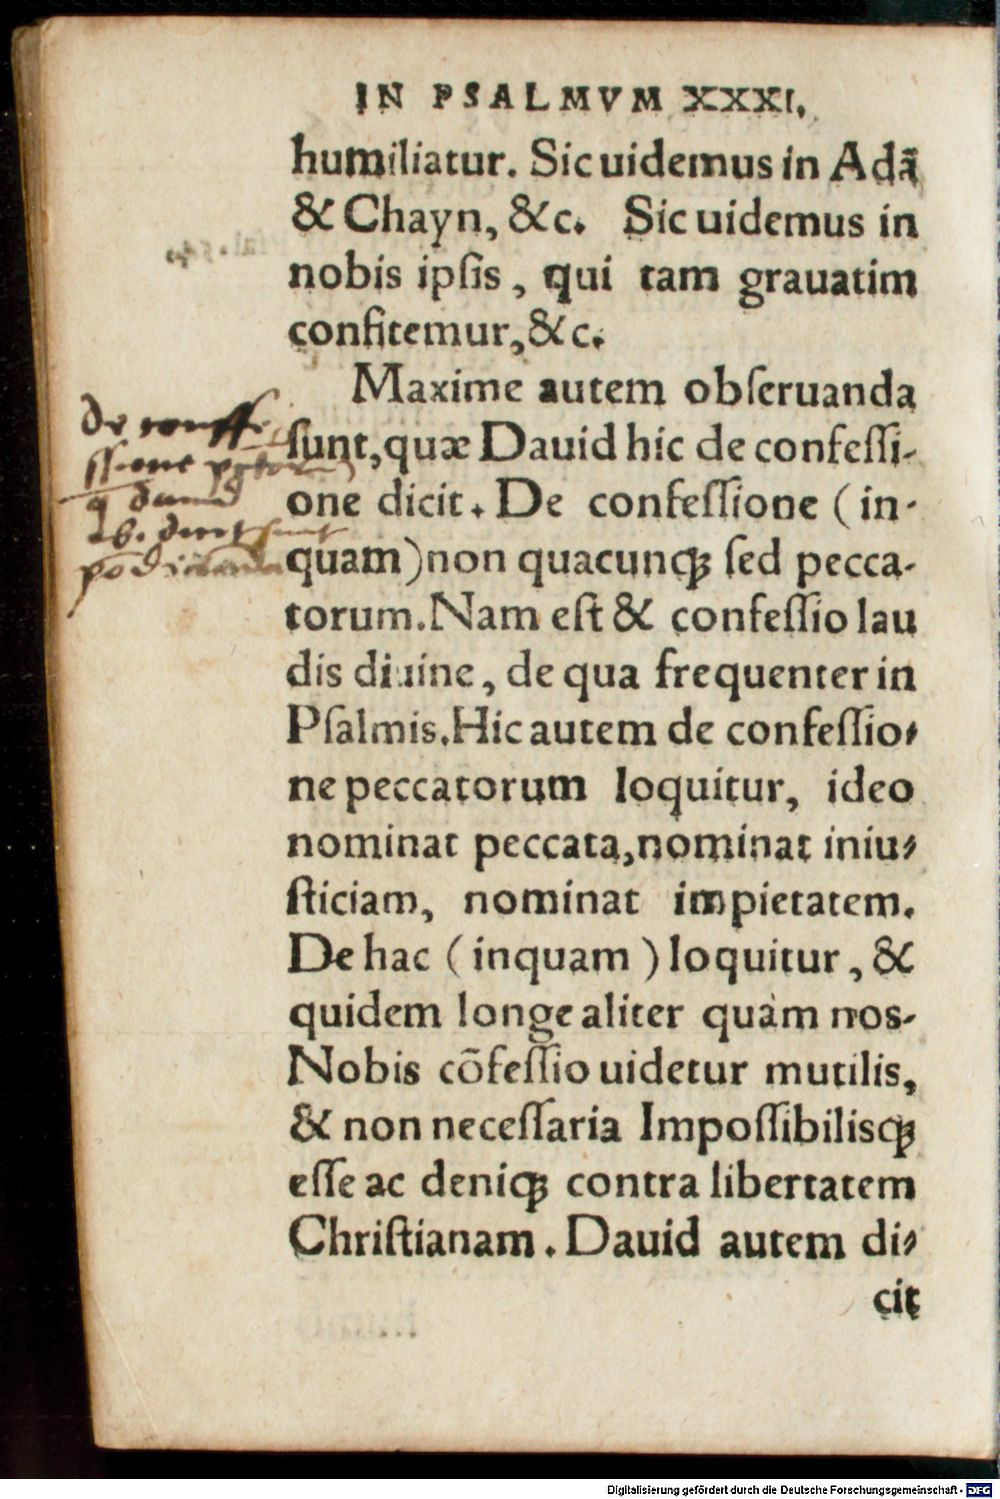 IN PSALMVM XXXI.
humiliatur. Sic uidemus in Adã
& Chayn, &c. Sic uidemus in
nobis ipſis, qui tam grauatim
confitemur, &c.
Maxime autem obſeruanda
ſunt, quæ Dauid hic de confeſſi-
one dicit. De confeſſione (in-
quam) non quacunqꝫ ſed pecca-
torum. Nam eſt & confeſſio lau
dis diuine, de qua frequenter in
Pſalmis. Hic autem de confeſſio-
ne peccatorum loquitur, ideo
nominat peccata, nominat iniu-
ſticiam, nominat impietatem.
De hac (inquam) loquitur, &
quidem longe aliter quàm nos.
Nobis cõfeſſio uidetur mutilis,
& non neceſſaria Impoſſibilisqꝫ
eſſe ac deniqꝫ contra libertatem
Chriſtianam. Dauid autem di-
cit
de
Digitalisierung gefördert durch die Deutsche Forschungsgemeinschaft - DFG